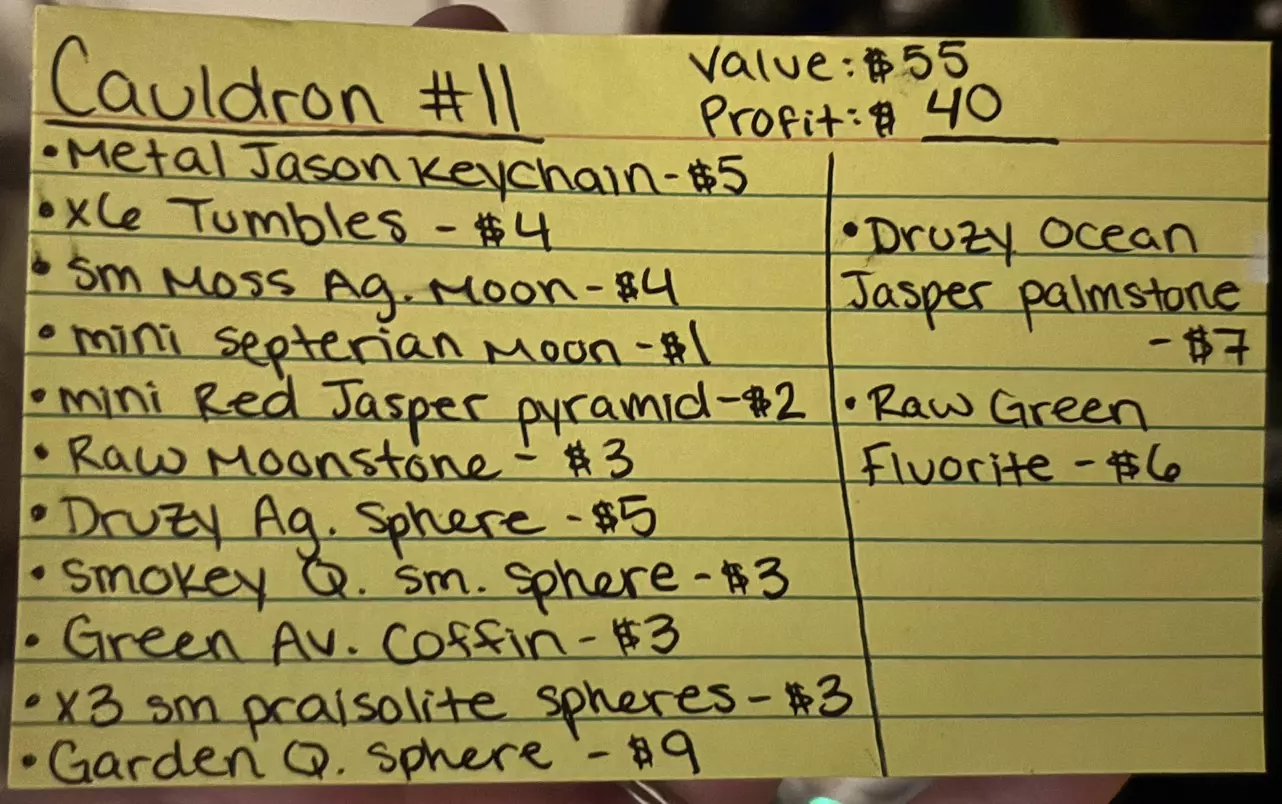 Cauldron #11
Value: $55
Profit: $ 40
• Metal Jason Keychain - $5
• x6 Tumbles - $4
• Sm Moss Ag. Moon - $4
• mini Septerian Moon - $1
• mini Red Jasper pyramid - $2
• Raw Moonstone - $3
• Druzy Ag. Sphere - $5
• Smokey Q. sm. Sphere - $3
• Green Av. Coffin - $3
• x3 sm praisolite spheres - $3
• Garden Q. sphere - $9
• Druzy Ocean
Jasper palmstone
- $7
• Raw Green
Fluorite - $6